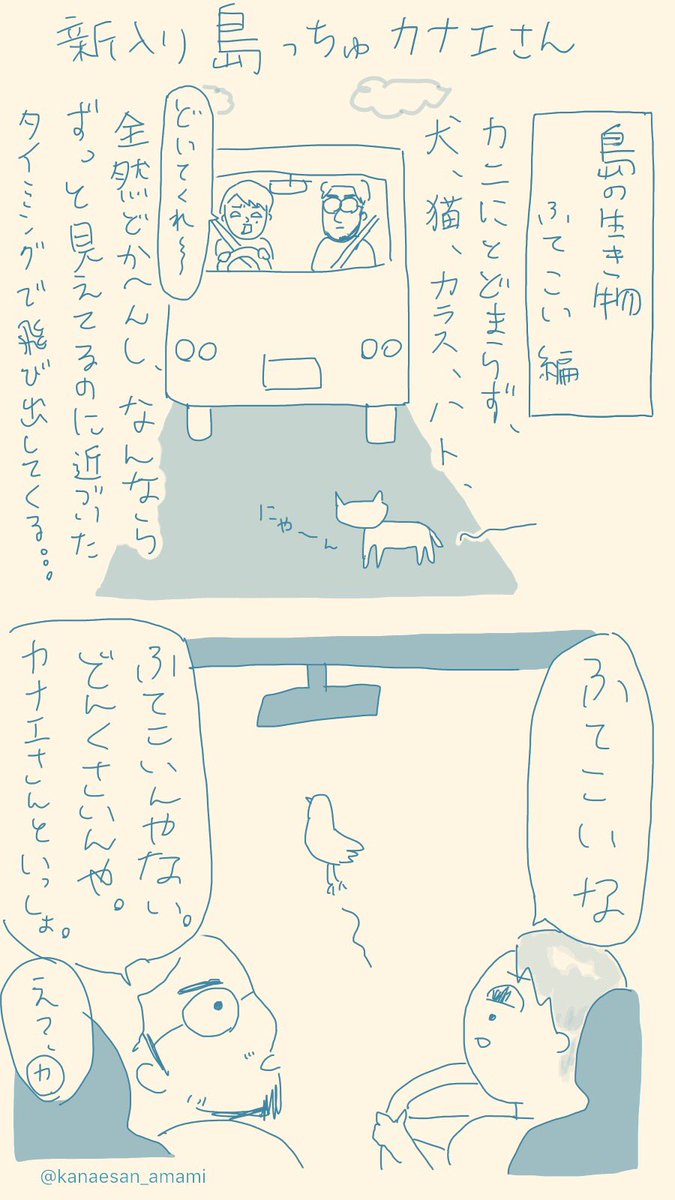 新入り島っちゅカナエさん
島の生き物
ふてこい編
カニにとどまらず、
犬、猫、カラス、ハト、
どいてくれ〜〜
全然どかへんし、なんなら
ずっと見えてるのに近づいた
タイミングで飛び出してくる...
にゃ〜ん
ふてこいな
ふてこいんやない。
どんくさいんや。
カナエさんといっしょ。
え?、カ
@kanaesan_amami